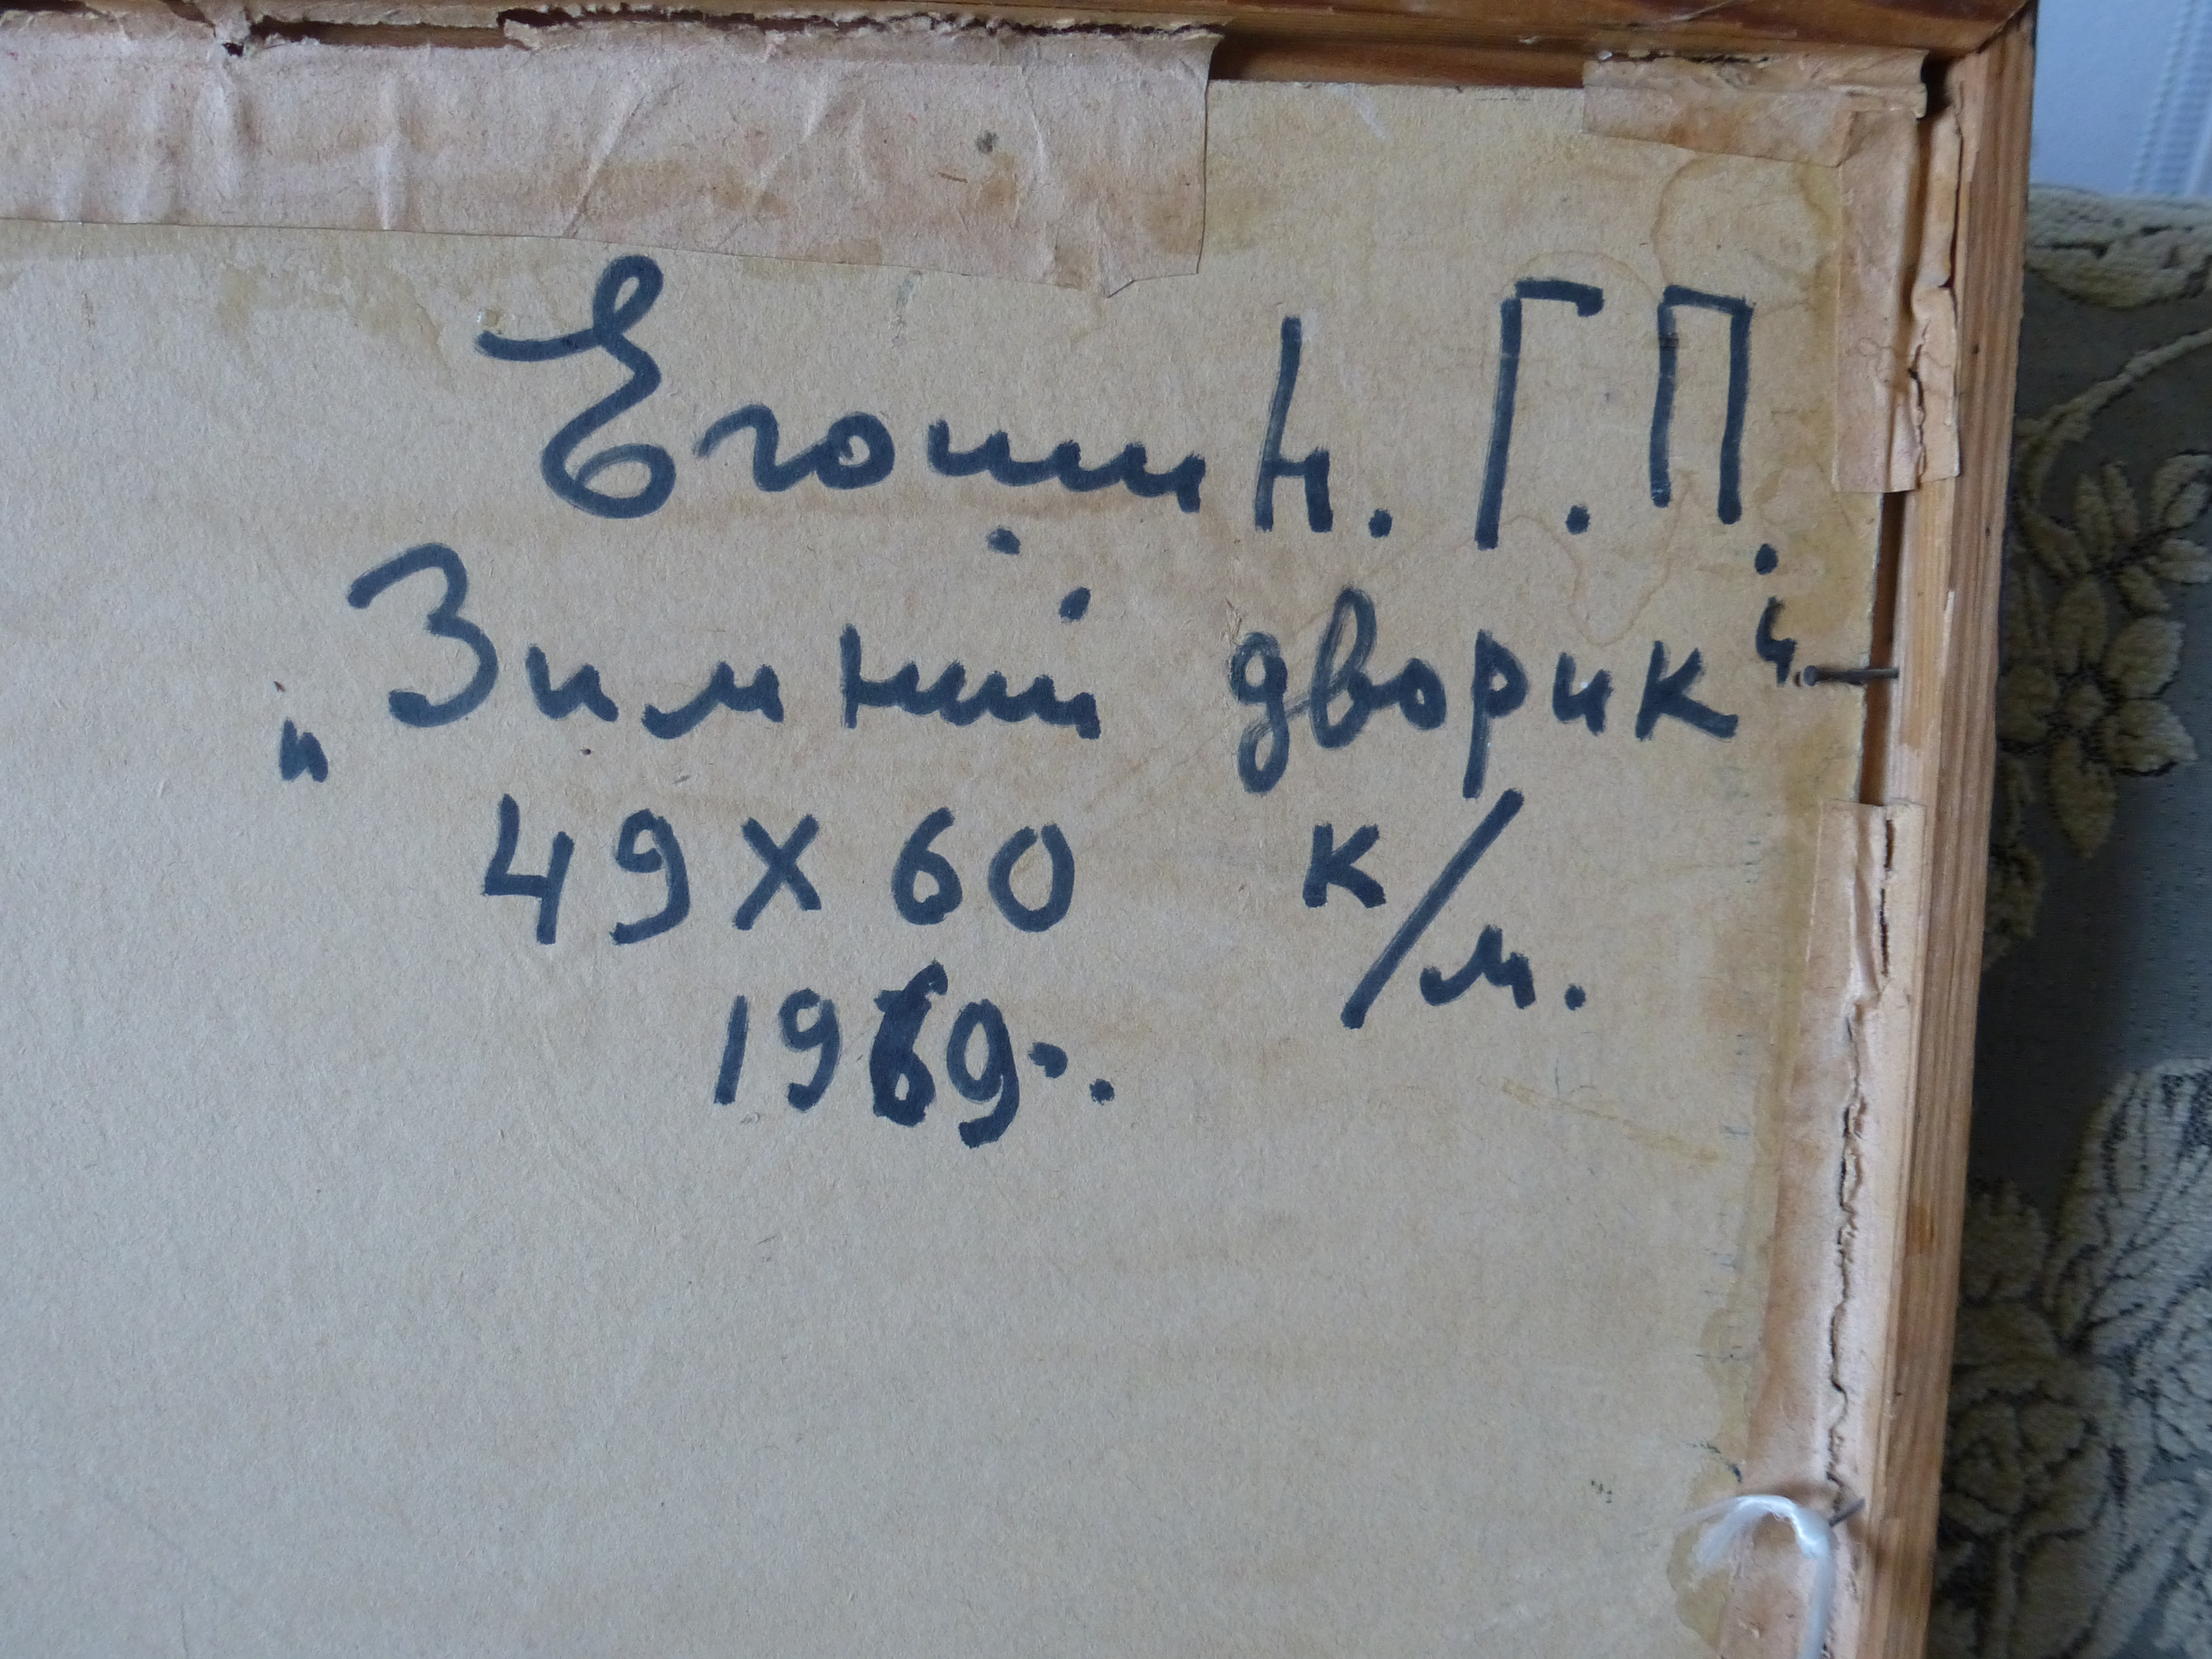 Егошин. Г.П.
„Зимний дворик“.
49 x 60 к/м.
1969г.